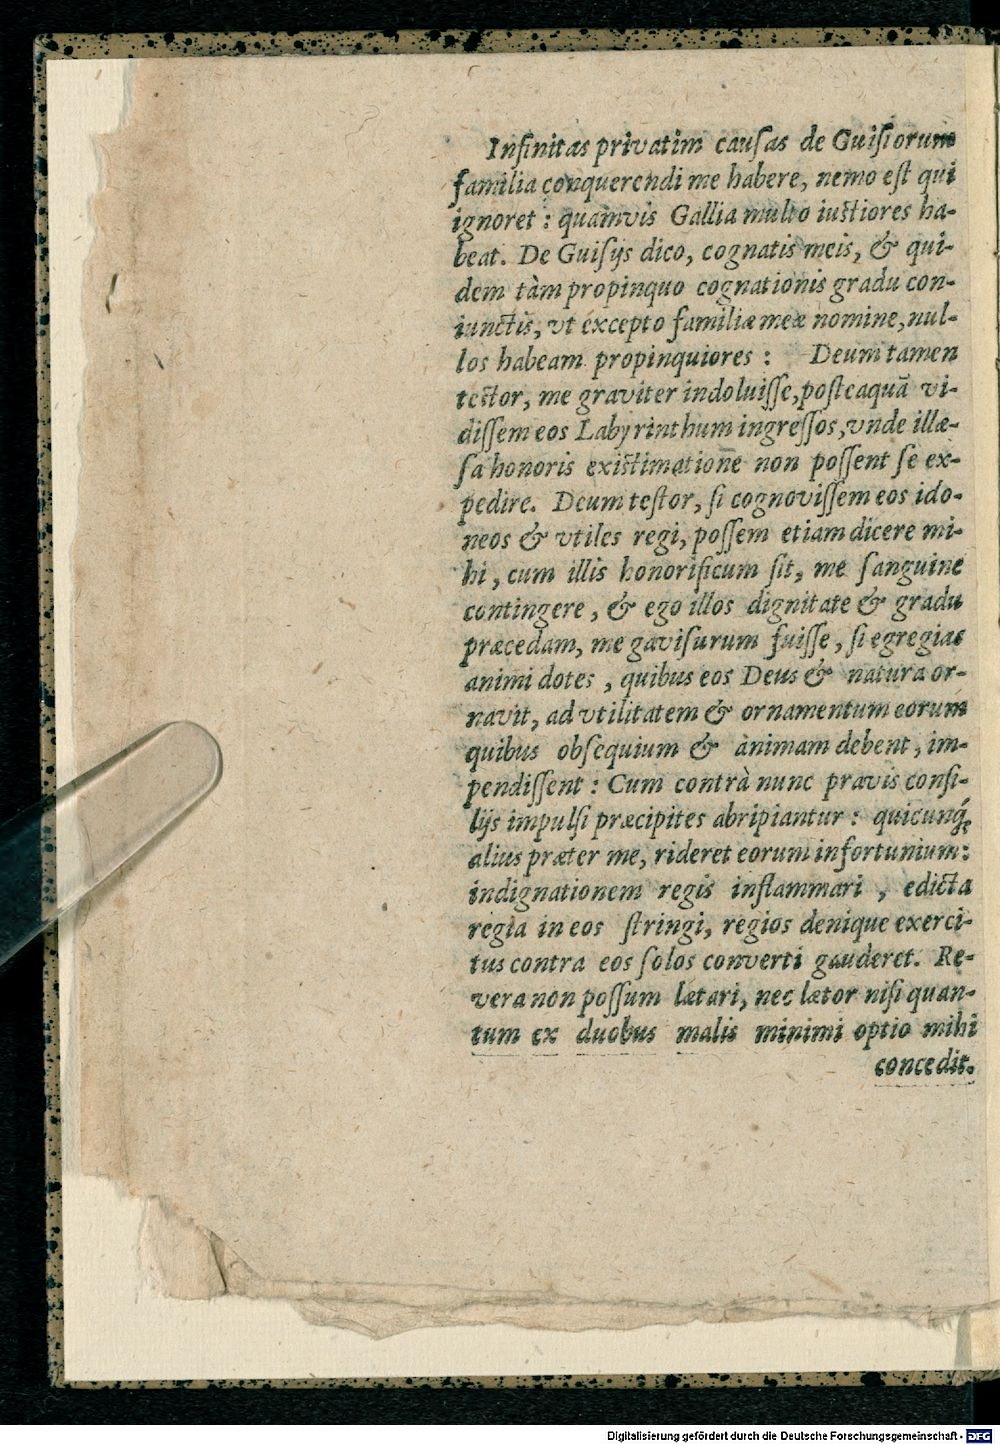 Infinitas privatim cauſas de Guiſiorum
familia conquerendi me habere, nemo eſt qui
ignoret : quamvis Gallia multo iuſtiores ha-
beat. De Guiſijs dico, cognatis meis, & qui-
dem tàm propinquo cognationis gradu con-
iunctis, vt excepto familiæ meæ nomine, nul-
los habeam propinquiores : Deum tamen
teſtor, me graviter indoluiſſe, poſteaquã vi-
diſſem eos Labyrinthum ingreſſos, vnde illæ-
ſa honoris exiſtimatione non poſſent ſe ex-
pedire. Deum teſtor, ſi cognoviſſem eos ido-
neos & vtiles regi, poſſem etiam dicere mi-
hi, cum illis honorificum ſit, me ſanguine
contingere, & ego illos dignitate & gradu
præcedam, me gaviſurum fuiſſe, ſi egregias
animi dotes, quibus eos Deus & natura or-
navit, ad vtilitatem & ornamentum eorum
quibus obſequium & animam debent, im-
pendiſſent : Cum contrà nunc pravis conſi-
lijs impulſi præcipites abripiantur : quicunq́;
alius præter me, rideret eorum infortunium:
indignationem regis inflammari , edicta
regia in eos ſtringi, regios denique exerci-
tus contra eos ſolos converti gauderet. Re-
vera non poſſum lætari, nec lætor niſi quan-
tum ex duobus malis minimi optio mihi
concedit.
Digitalisierung gefördert durch die Deutsche Forschungsgemeinschaft - DFG